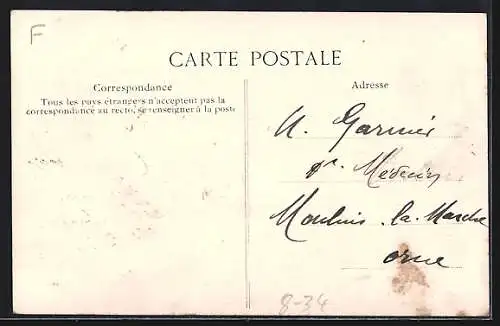 F
CARTE POSTALE
Correspondance
Tous les pays étrangers n'acceptent pas la
correspondance au recto, se renseigner à la poste
Adresse
M. Garnier
Dr. Médecin
Moulins-la-Marche
Orne
8-34